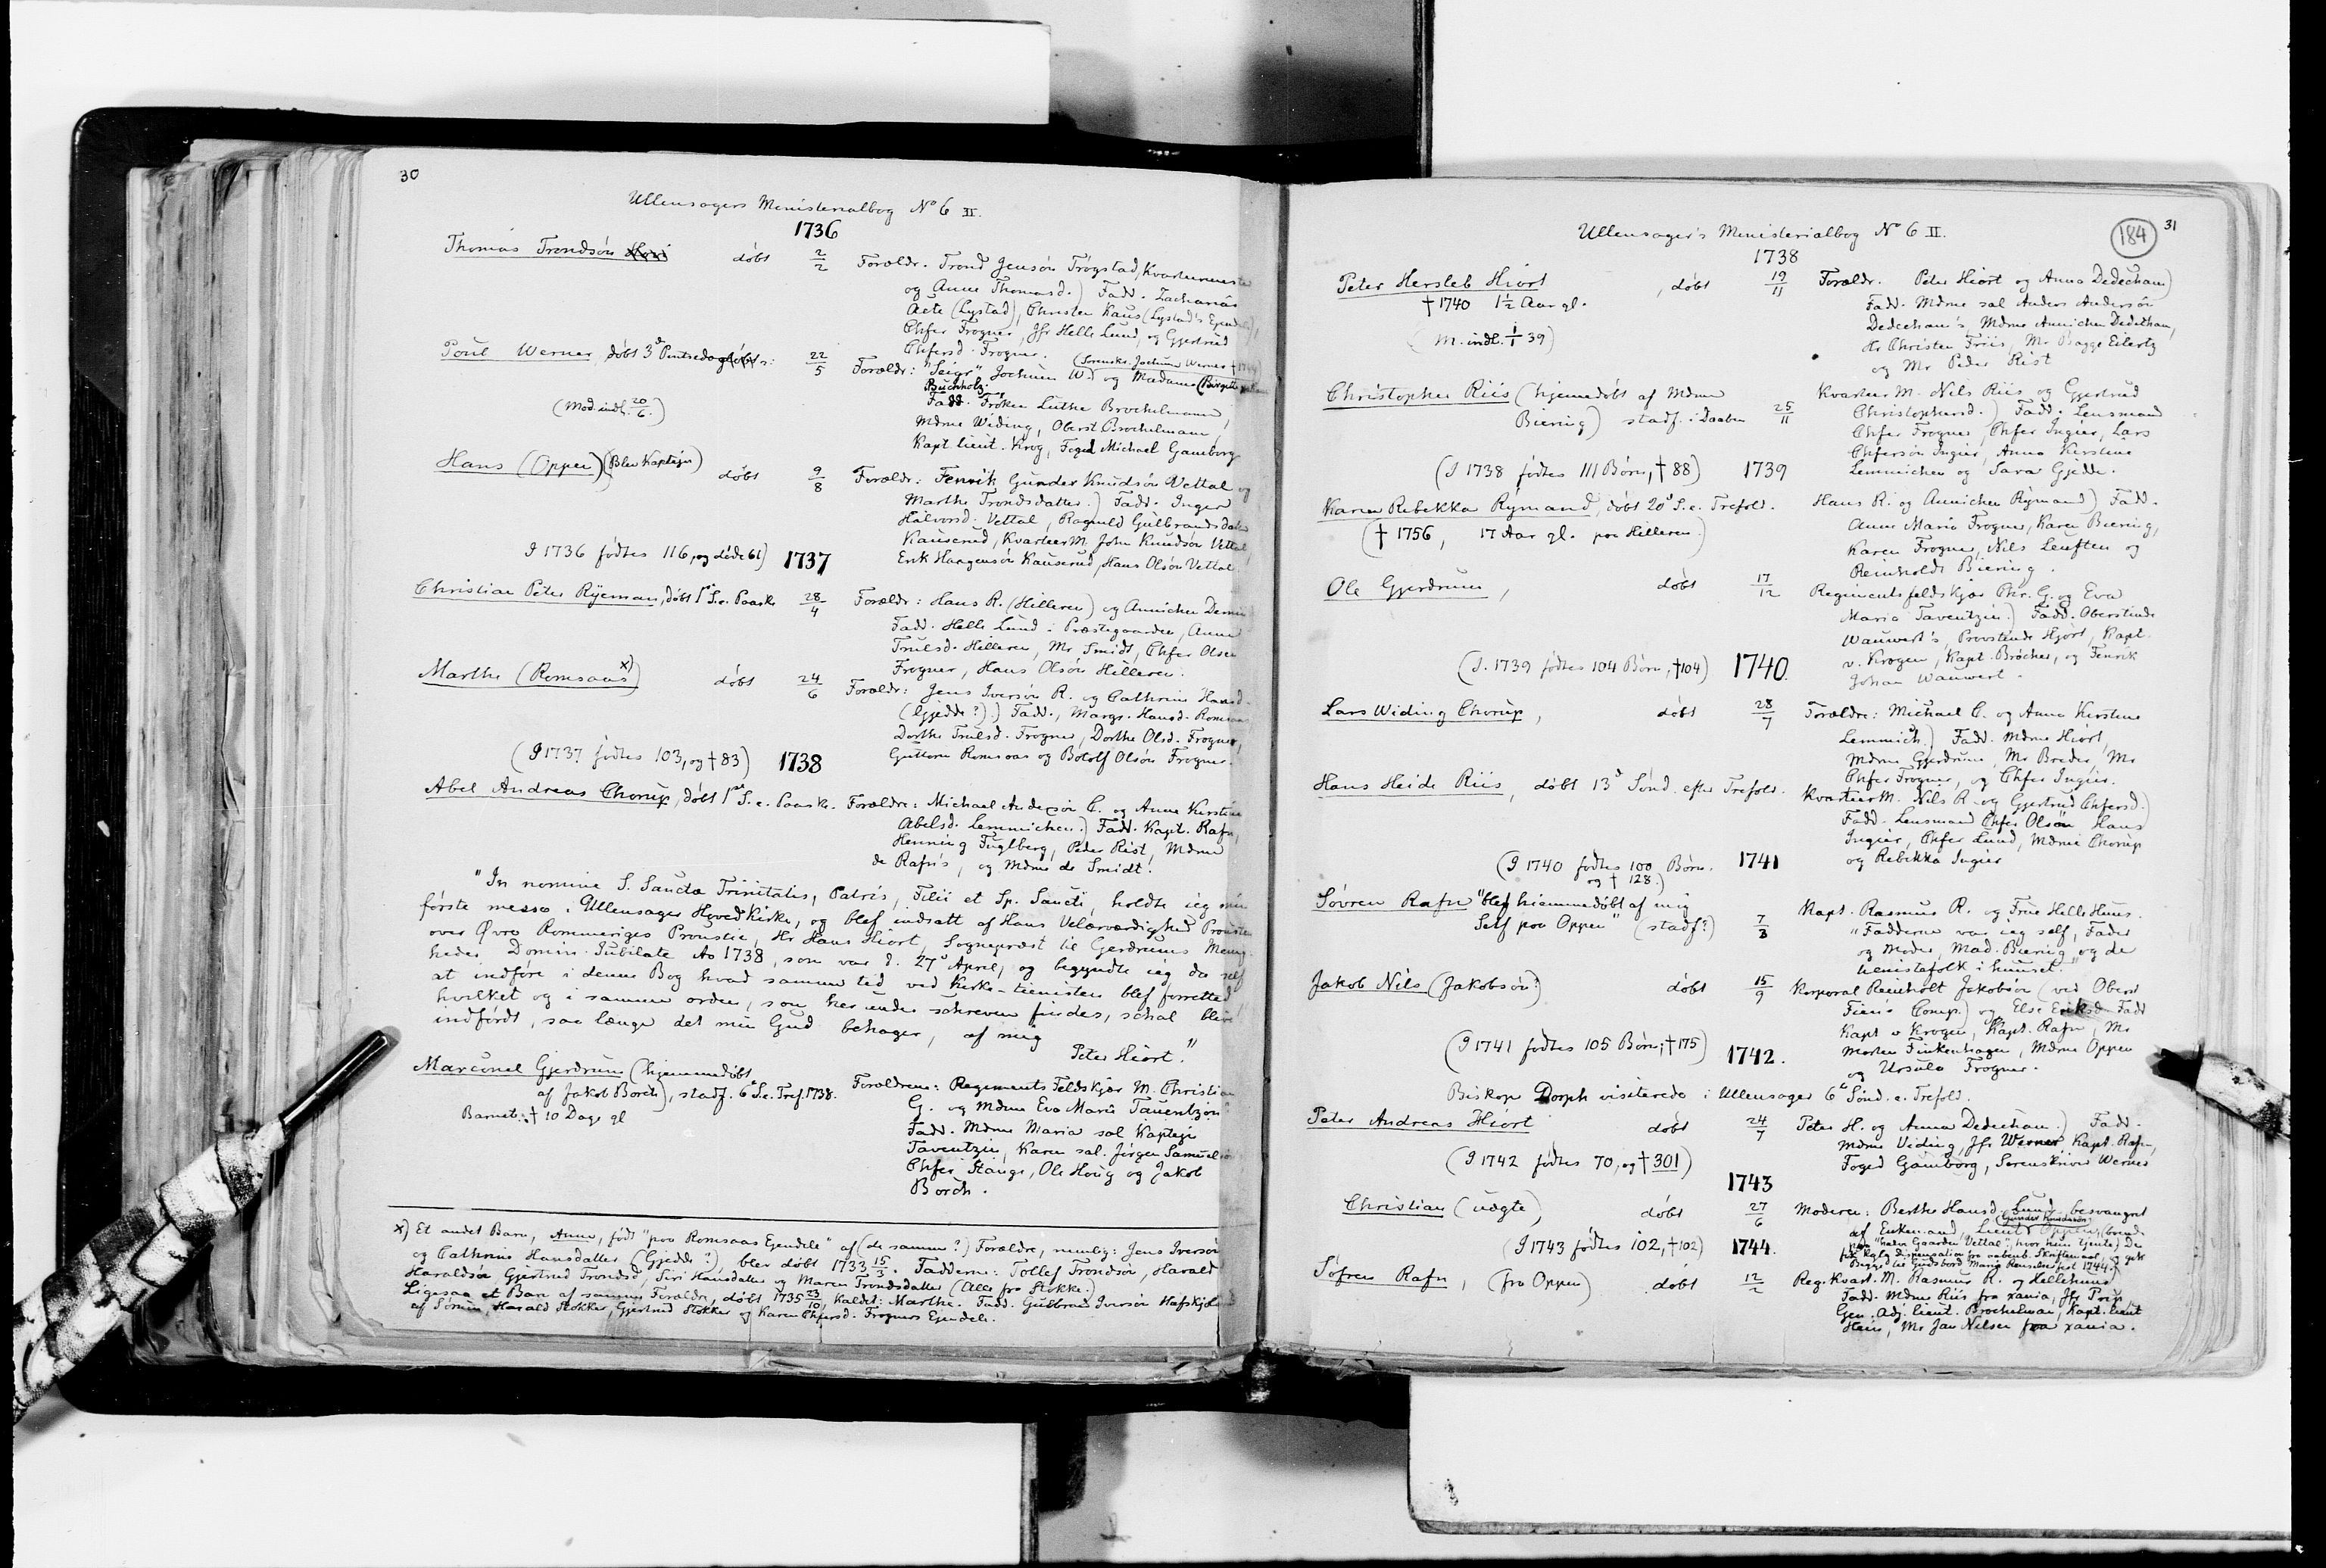 30
Ullensagers Ministerialbog No 6 II.
1736
Thomas Trondsön døbt 2/2 Forældr. Trond Jensön Trogstad, Kvarteermester
og Anne Thomasd.) Fadd. Zacharias
Aete (Lystad), Christen Kaus (Lystad's Eiendele),
Chfer Frogner, Jfr Helle Lund, og Gjertrud
Chfersd. Frogner.
Poul Werner, døbt 3d Pintsedag 22/5 Forældr: "Seigr" Jochum W. og Madame (Birgitte
(Sorenskr. Jochum Werner
Buchholz.
(Mod. indl. 20/6.)
Fadd. Frøken Luthe Brochelmann,
Mdme Widing, Oberst Brochelmann,
Kapt lieut. Krog, Foged Michael Gamborg
Hans (Oppen) (Blev Kaptejn) døbt 9/8 Forældr: Fenrik Gunder Knudsön Vettal og
Marthe Trondsdatter.) Fadd. Inger
Halvorsd. Vettal, Ragnild Gulbrandsdatter
Kauserud, Kvarteer M. John Knudsön Vettal,
Erik Haagensön Kauserud, Hans Olsön Vettal.
I 1736 fødtes 116, og døde 61) 1737
Christian Peter Ryeman, døbt 1e S.e. Paaske 28/4 Forældr: Hans R. (Hilleren) og Annichen
Fadd. Helle Lund i Præstegaarden, Anne
Trulsd. Hilleren, Mr Smidt, Chfer Olsen
Frogner, Hans Olsön Hilleren.
Marthe (Romsaas x) døbt 24/6 Forældr: Jens Iversön R. og Cathrine Hansd.
(Gjedde?).) Fadd., Margr. Hansd. Romsaas,
Dorthe Trulsd. Frogner, Dorthe Olsd. Frogner,
Guttorm Romsaas og Botolf Olsön Frogner.
(I 1737 fødtes 103, og † 83) 1738
Abel Andreas Chorup, døbt 1ste S.e. Paaske. Forældre: Michael Andersön C. og Anne Kirstine
Abelsd. Lemmichen.) Fadd. Kapt. Rafn,
Henning Fuglberg, Peder Rist, Mdme
de Rafn's, og Mdme de Smidt.
"In nomine S. Sanctæ Trinitatis, Patris, Filii et Sp. Sancti, holdte ieg min
første messe i Ullensager Hoved Kirke, og blef indsatt af Hans Velærværdighed Provsten
over Øvre Rommeriges Proustie, Hr Hans Hiort, Sognepræst til Gerdrums Menig-
heder, Domin. Jubilate Ao 1738, som var d. 27de April, og begyndte ieg da self
at indføre i denne Bog hvad samme tid ved Kirke-tienisten blef forrettet
hvilket og i samme orden, som her under schreven findes, schal blive
indfördt, saa længe det min Gud behager, af mig
Peter Hiort."
Marconel Gjerdrum (hjemmedøbt
af Jakob Borch), stadf. 6e S.e. Tref. 1738.
Barnet: † 10 Dage gl
Forældrene: Regiments Feldskjær M. Christian
G. og Mdme Eva Maria Tauentzjon
Fadd. Mdme Maria sal Kaptejn
Taventzin, Karen sal. Jørgen Samuels
Chfer Stange, Ole Houg og Jakob
Borch.
x) Et andet Barn, Anne, født "paa Romsaas Eyendele" af (de samme?) Forældre, nemlig: Jens Iversön
og Cathrine Hansdatter (Gjedde?), blev døbt 1733 15/3. Fadderne: Tollef Trondsön, Harald
Haraldsön, Gjertrud Trondsd, Siri Hansdatter og Maren Trondsdatter (Alle fra Stokke.)
Ligesaa et Barn af samme Forældre, døbt 1735 23/10, kaldet: Marthe. Fadd. Gulbran Iversön Hafskjöl
af Sörum, Harald Stokker, Gjertrud Stokker og Karen Chfersd. Frogners Ejendele.
31
184
Ullensager's Ministerialbog No 6 II.
1738
Peter Hersleb Hiort, døbt 19/11 Forældr. Peter Hiort og Anna Dedecham)
† 1740 1½ Aar gl.
(M. indl. 1/1 39)
Fadd. Mdme sal Anders Andersön
Dedecham's, Mdme Annichen Dedecham,
Hr Christen Friis, Mr Bagge Eilertz
og Mr Peder Rist
Christopher Riis (hjemmedøbt af Mdme
Biering) stadf. i Daaben 25/11
Kvarteer M. Nils Riis og Gjertrud
Christophersd.) Fadd. Lensmand
Chfer Frogner, Chfer Ingier, Lars
Chfersön Ingier, Anna Kirstine
Lemmichen og Sara Gjedde.
(I 1738 fødtes 111 Børn, † 88) 1739
Karen Rebekka Rymand, døbt 20e S.e. Trefold. Hans R. og Annichen Rymand) Fadd.
(† 1756, 17 Aar gl. paa Hilleren.)
Anne Maria Frogner, Karen Biering,
Karen Frogner, Nils Leuften og
Reinholdt Biering.
Ole Gjerdrum, døbt 17/12 Regimentsfeldskjær Chr. G. og Eva
Maria Taventzin.) Fadd. Oberstinde
Wauwert's, Provstinde Hjort, Kapt.
v. Krogen, Kapt. Bröcher, og Fenrik
Johan Wauwert.
(I. 1739 fødtes 104 Børn, † 104) 1740.
Lars Widing Chorup, døbt 28/7 Forældre: Michael C. og Anna Kirstine
Lemmich.) Fadd. Mdme Hiort,
Mdme Gjerdrum, Mr Breder, Mr
Chfer Frogner, og Chfer Ingier.
Hans Heide Riis, døbt 13d Sönd. efter Trefold. Kvarteer M. Nils R. og Gjertrud Chfersd.)
Fadd. Lensmand Chfer Olsön, Hans
Ingier, Chfer Lund, Mdme Chorup
og Rebekka Ingier
(I 1740 fødtes 100 Børn.
og † 128.) 1741
Søvren Rafn "blef hiemmedøbt af mig
Self paa Oppen" (stadf?) 7/8
Kapt. Rasmus R. og Frue Helle Huus.
"Fadderne var ieg self, Fader
og Moder, Mad. Biering og de
tienistefolk i huuset."
Jakob Nils (Jakobsön?) døbt 15/9 Korporal Reinholt Jakobsön (ved Oberst
Comp.) og Else Eriksd. Fadd
Kapt v Krogen, Kapt. Rafn, Mr
Morten Finkenhagen, Mdme Oppen
og Ursula Frogner.
(I 1741 fødtes 105 Børn; † 175) 1742.
Biskop Dorph visiterede i Ullensager 6e Sönd. e. Trefold.
Peter Andreas Hiort døbt 24/7 Peter H. og Anna Dedecham.) Fadd.
Mdme Viding, Jfr Werner, Kapt. Rafn,
Foged Gamborg, Sorenskriver Werner
(I 1742 fødtes 70, og † 301)
1743
Christian (uægte), døbt 27/6 Moderen: Berthe Hansd. Lund, besvangret
af Enkemand, Lieut (Gunder Knudssön) Oppen, (boende
paa "halve Gaarden Vettal", hvor hun tjente) De
fik Kglg dispensation fra aabenb. Skriftemaal, og gik
Begge til Gudsbord Mariæ Renselses fest 1744.)
(I 1743 fødtes 102, † 102) 1744.
Søfren Rafn, (fra Oppen) døbt 12/2 Reg. Kvart. M. Rasmus R. og Helle Huus
Fadd. Mdme Riis fra xania, Jfr
Gen. Adj. lieut. Brochelman, Kapt. lieut
Hein, Mr Jan Nilsen fra xania.